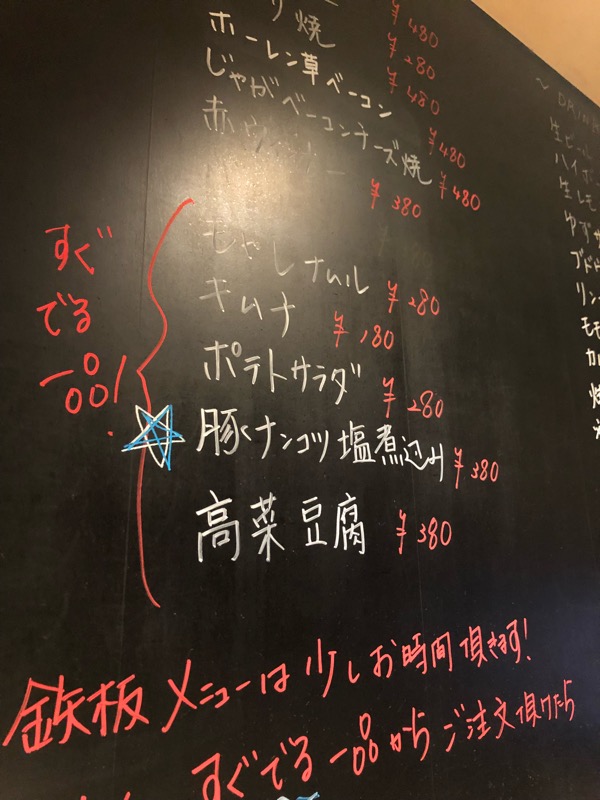 り焼 ¥480
ホーレン草ベーコン ¥280
じゃがベーコンチーズ焼 ¥480
¥480
¥480
¥380
すぐ
でる
一品!
もやしナムル ¥280
キムチ ¥180
ポテトサラダ ¥280
豚ナンコツ塩煮込み ¥380
高菜豆腐 ¥380
鉄板メニューは少しお時間頂きます!
すぐでる一品からご注文頂けたら
生ビール
ハイボ
生レモ
ゆず
ブドウ
リン
モモ
カル